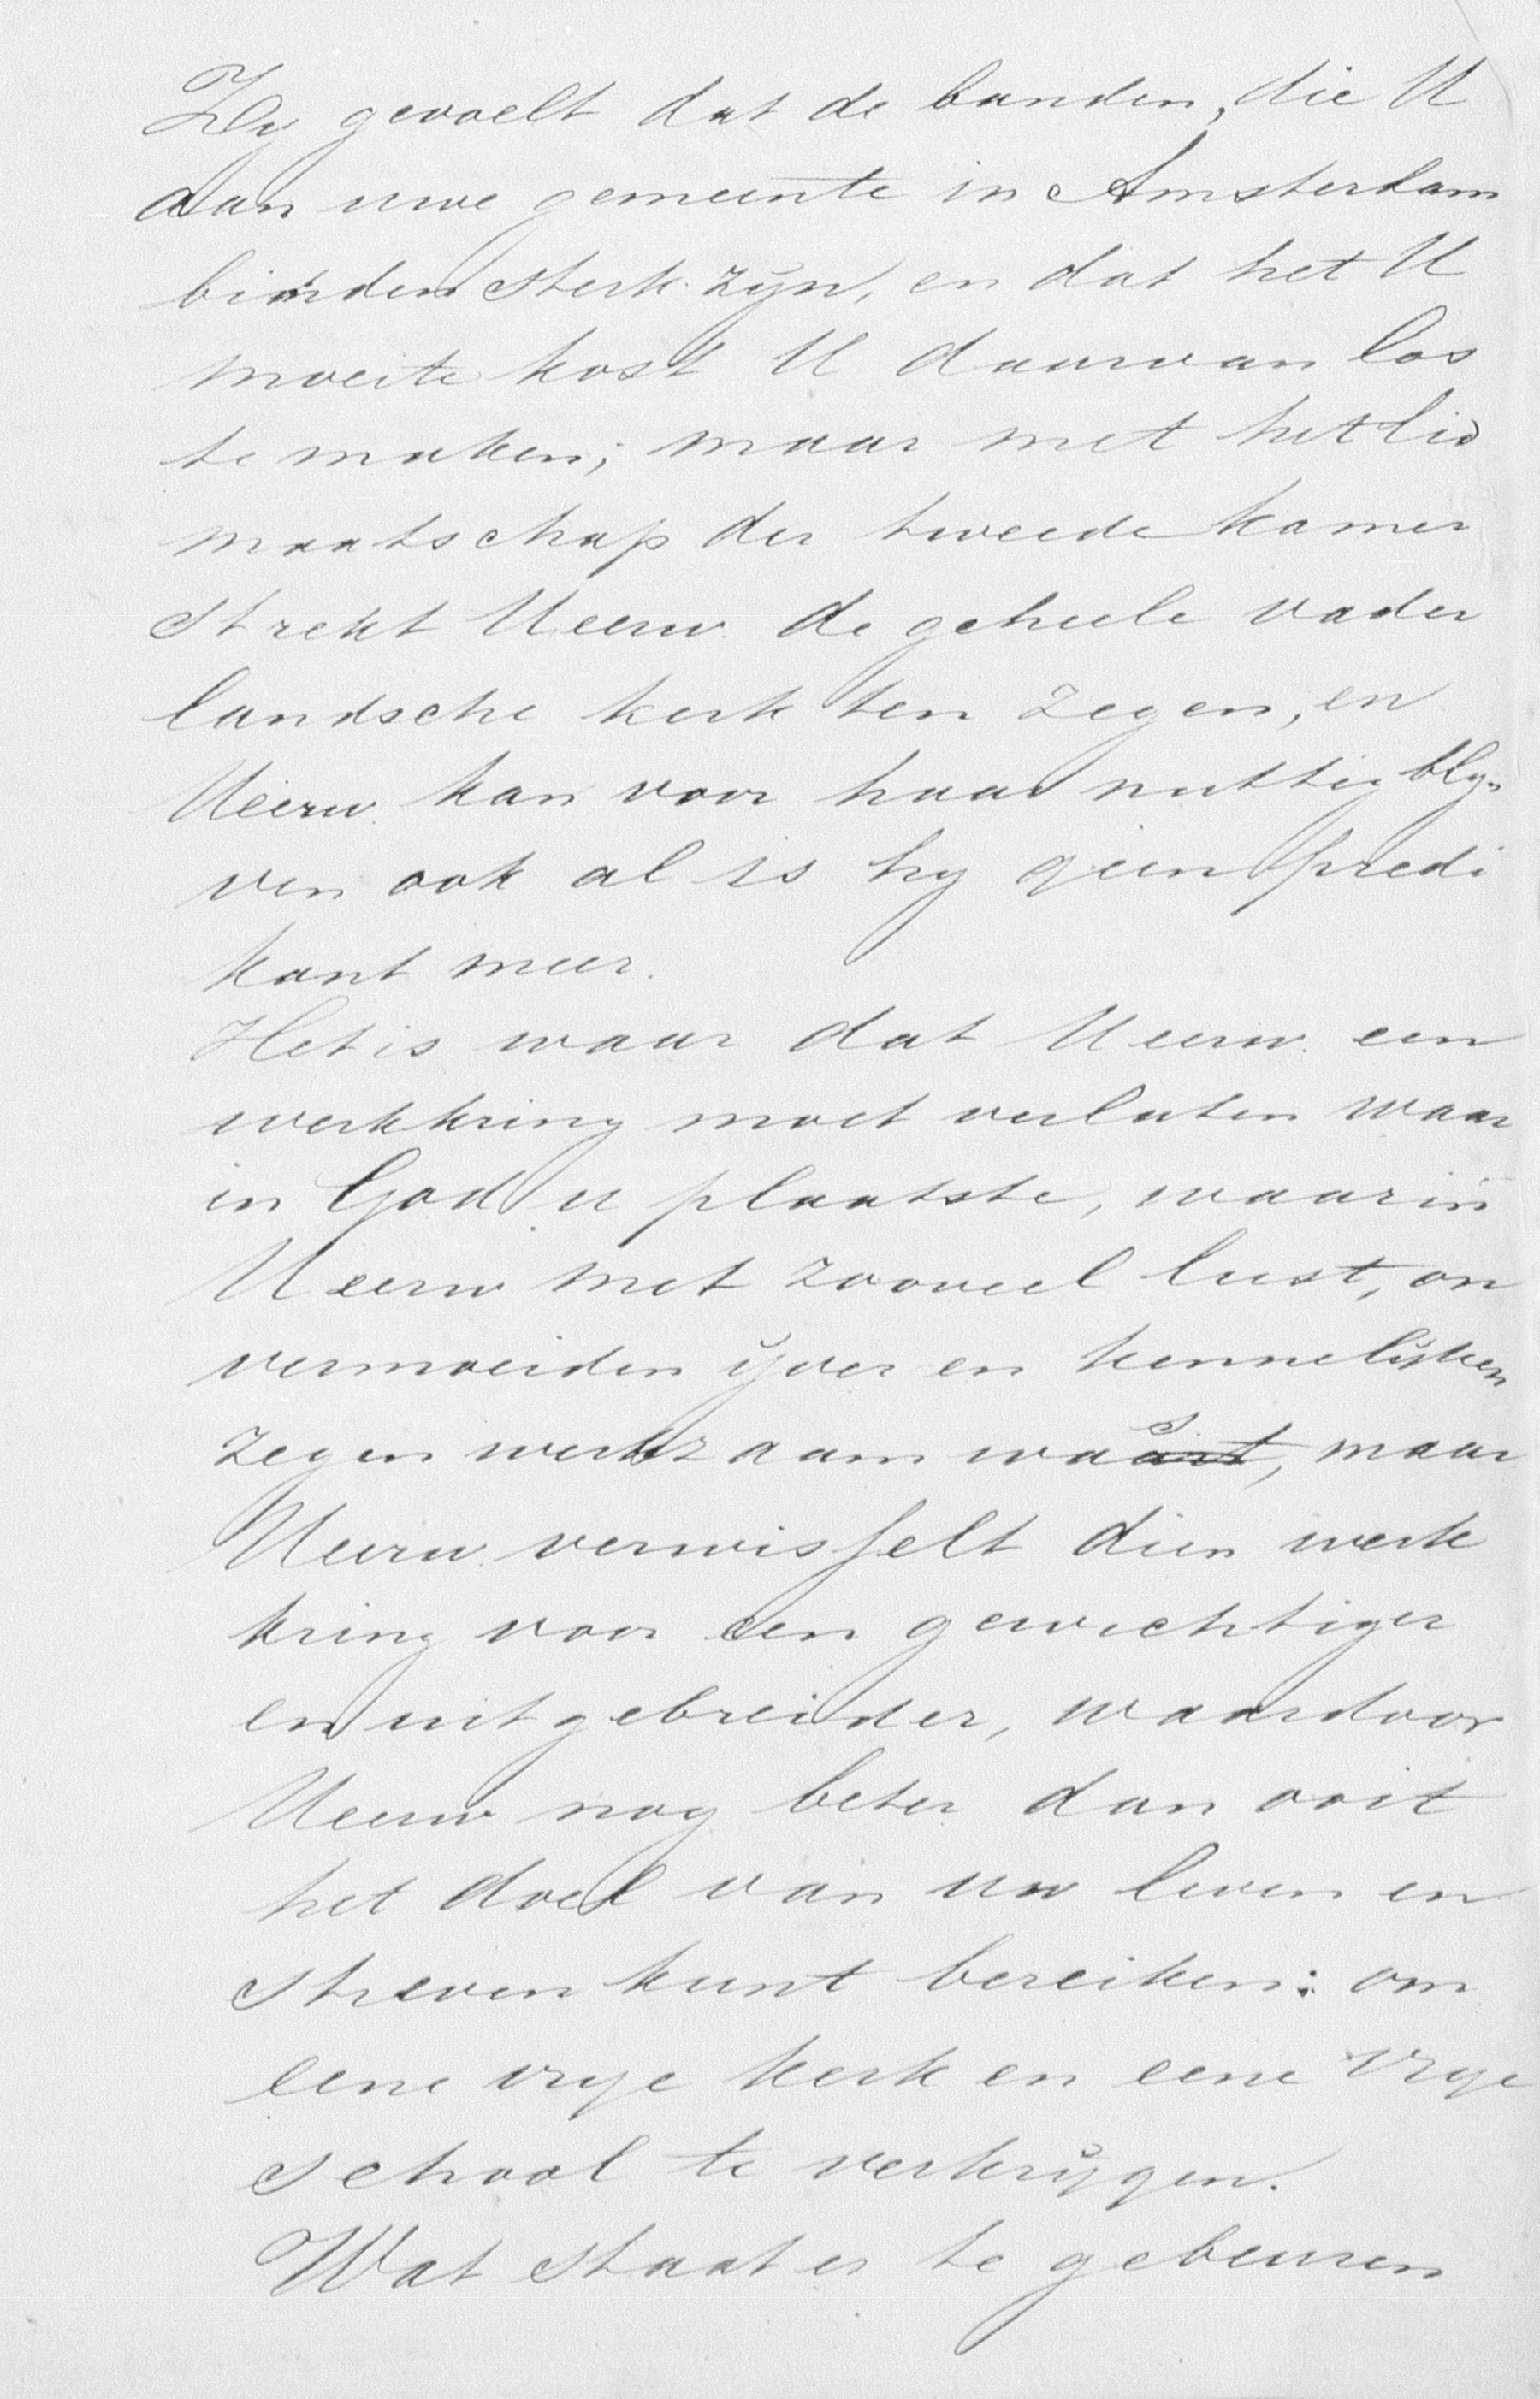 Zy gevoelt dat de banden, die U
aan uwe gemeente in Amsterdam
binden sterk zyn, en dat het U
moeite kost U daarvan los
te maken; maar met het lid
maatschap der tweede kamer
strekt Ueerw. de geheele vader
landsche kerk ten zegen, en
Ueerw. kan voor haar nuttig bly-
ven ook al is hy geen predi
kant meer.
Het is waar dat Ueerw. een
werkkring moet verlaten waar
in God u plaatste, waarin
Ueerw met zooveel lust, on
vermoeiden ijver en kennelijken
zegen werkzaam was, maar
Ueerw. verwisselt dien werk
kring voor een gewichtiger
en uitgebreider, waardoor
Ueerw nog beter dan ooit
het doel van uw leven en
streven kunt bereiken: om
eene vrye kerk en eene vrye
school te verkrijgen.
Wat staat er te gebeuren